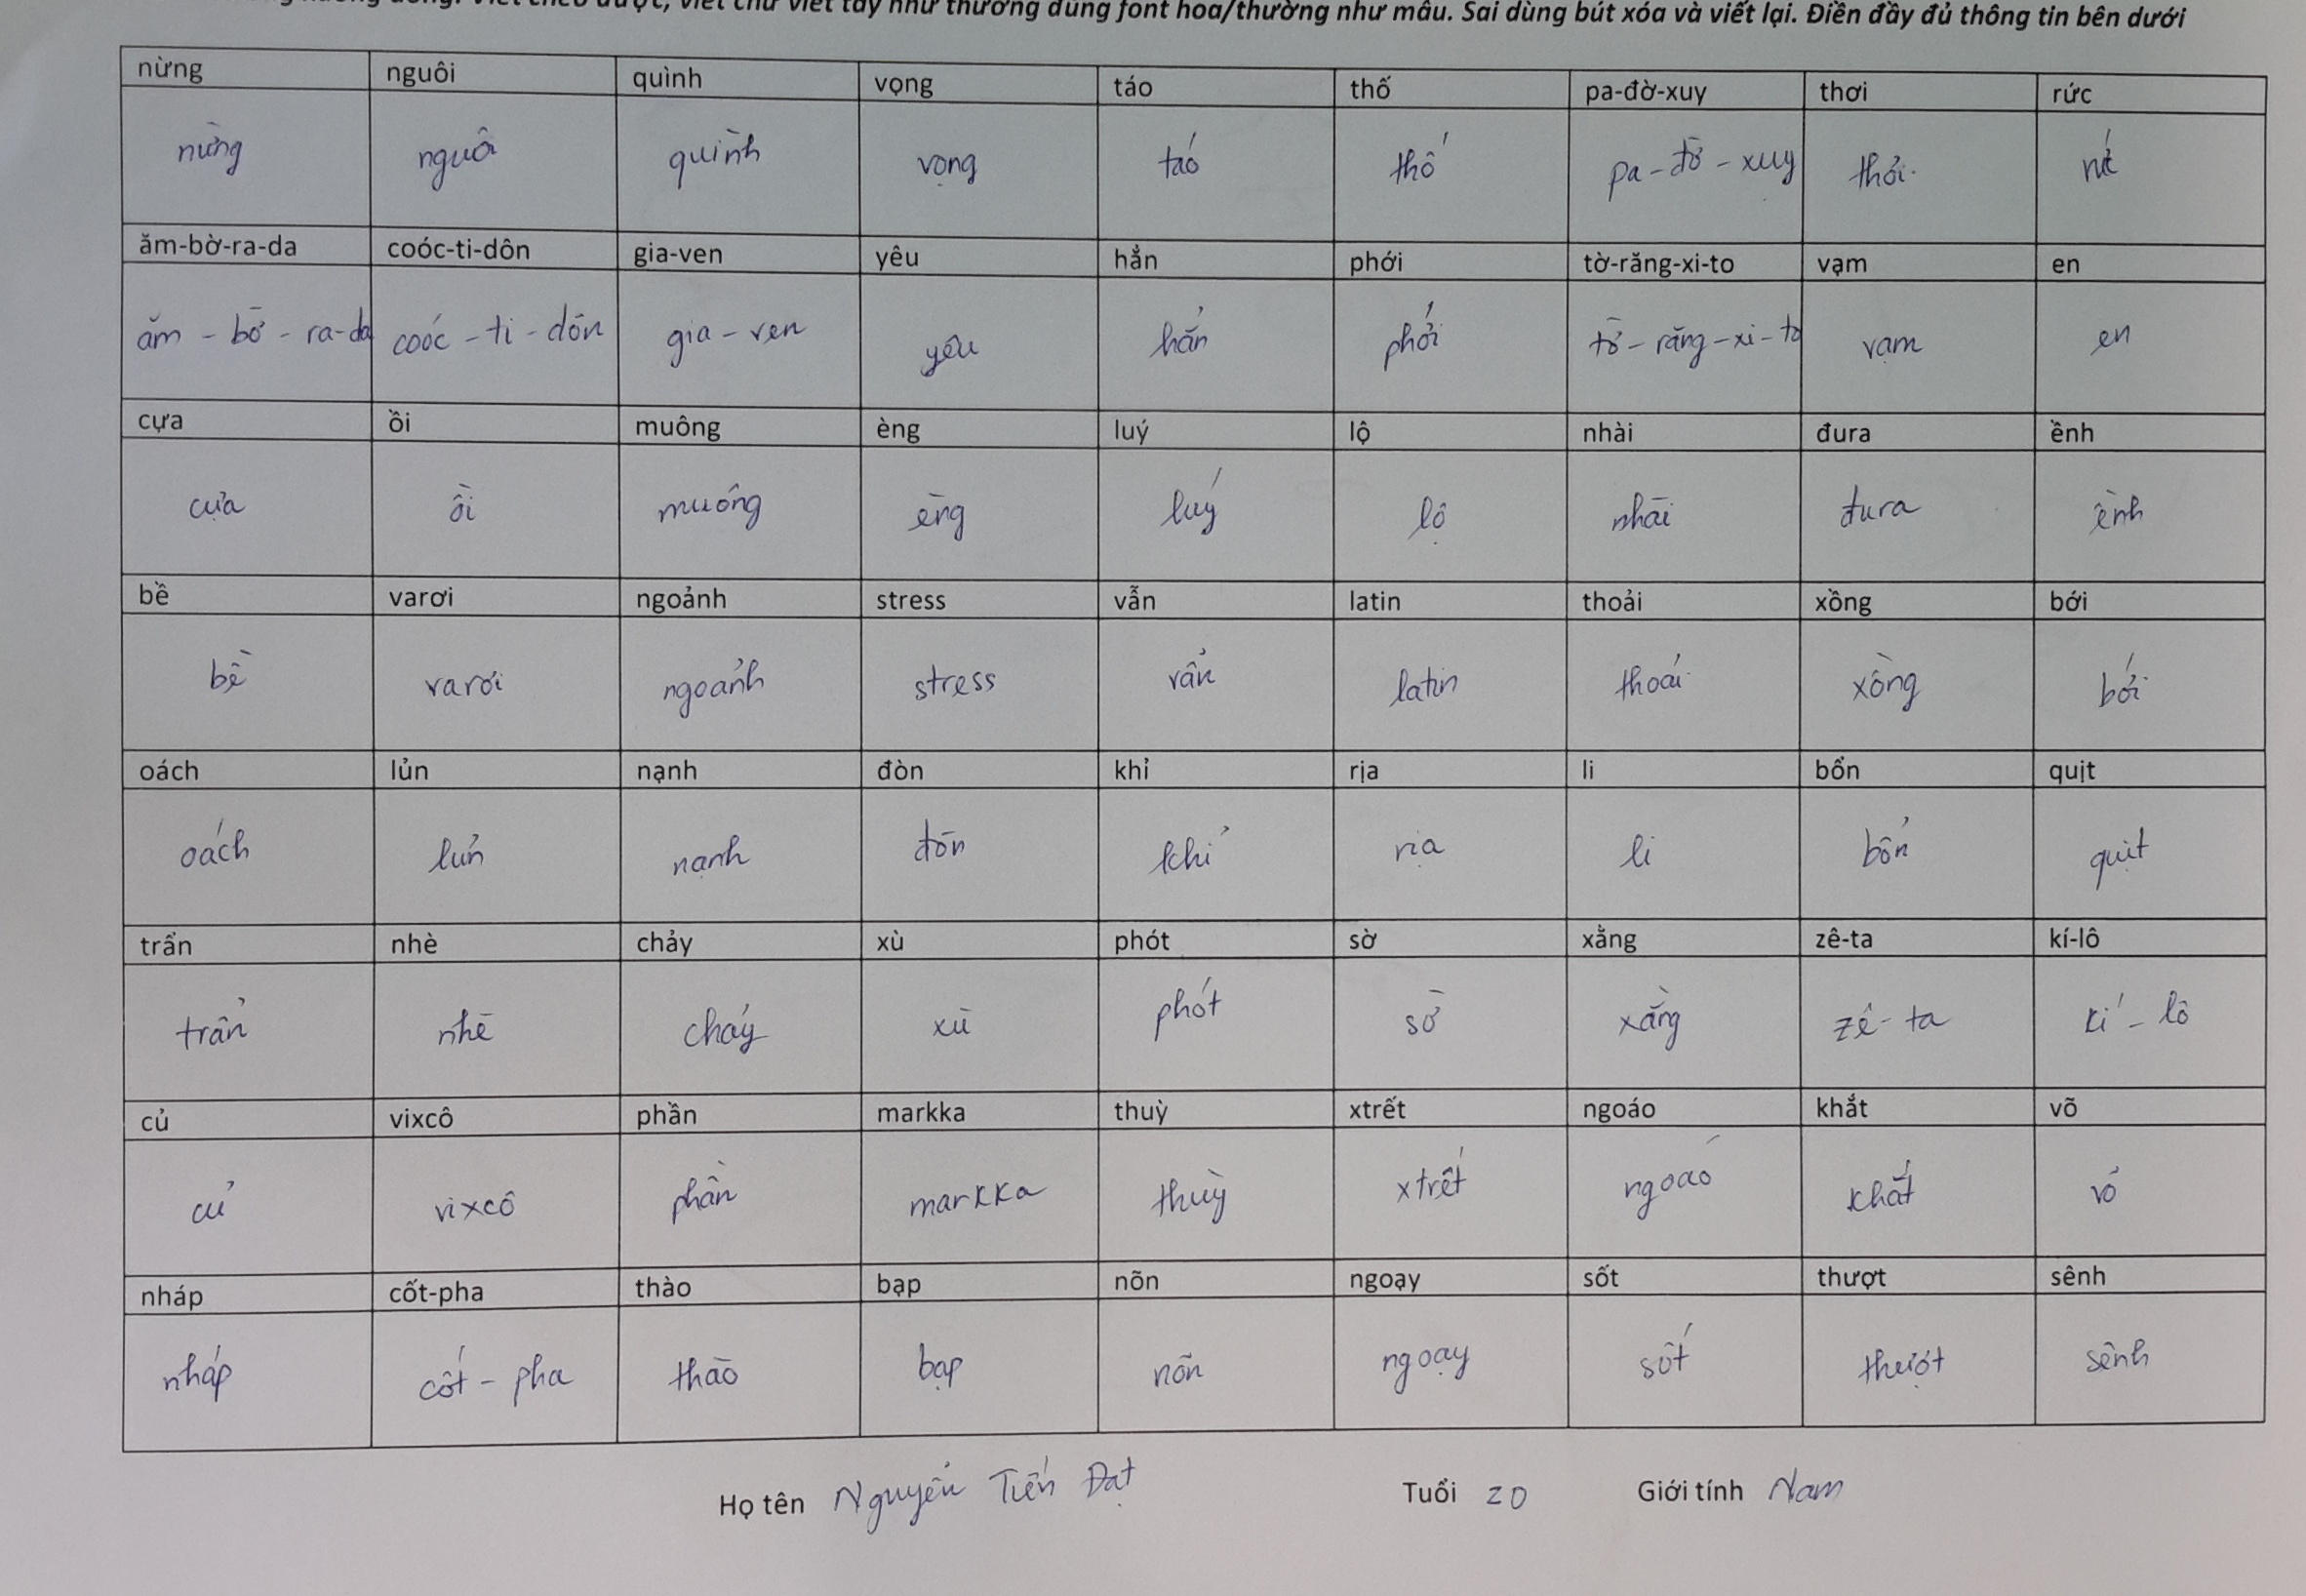 viết chữ viết tay như thường dùng font hoa/thường như mẫu. Sai dùng bút xóa và viết lại. Điền đầy đủ thông tin bên dưới
nừng nguôi quình vọng táo thố pa-đờ-xuy thơi rức
nừng nguôi quình vọng táo thố pa-đờ-xuy thơi rức
ăm-bờ-ra-da coóc-ti-dôn gia-ven yêu hẳn phới tờ-răng-xi-to vạm en
ăm-bờ-ra-da coóc-ti-dôn gia-ven yêu hẳn phới tờ-răng-xi-to vạm en
cựa ồi muông èng luý lộ nhài đura ềnh
cựa ồi muông èng luý lộ nhài đura ềnh
bề varơi ngoảnh stress vẫn latin thoải xồng bới
bề varơi ngoảnh stress vẫn latin thoải xồng bới
oách lủn nạnh đòn khỉ rịa li bổn quịt
oách lủn nạnh đòn khỉ rịa li bổn quịt
trẩn nhè chảy xù phót sờ xằng zê-ta kí-lô
trẩn nhè chảy xù phót sờ xằng zê-ta kí-lô
củ vixcô phần markka thuỳ xtrết ngoáo khắt võ
củ vixcô phần markka thuỳ xtrết ngoáo khắt võ
nháp cốt-pha thào bạp nõn ngoạy sốt thượt sênh
nháp cốt-pha thào bạp nõn ngoạy sốt thượt sênh
Họ tên Nguyễn Tiến Đạt Tuổi 20 Giới tính Nam